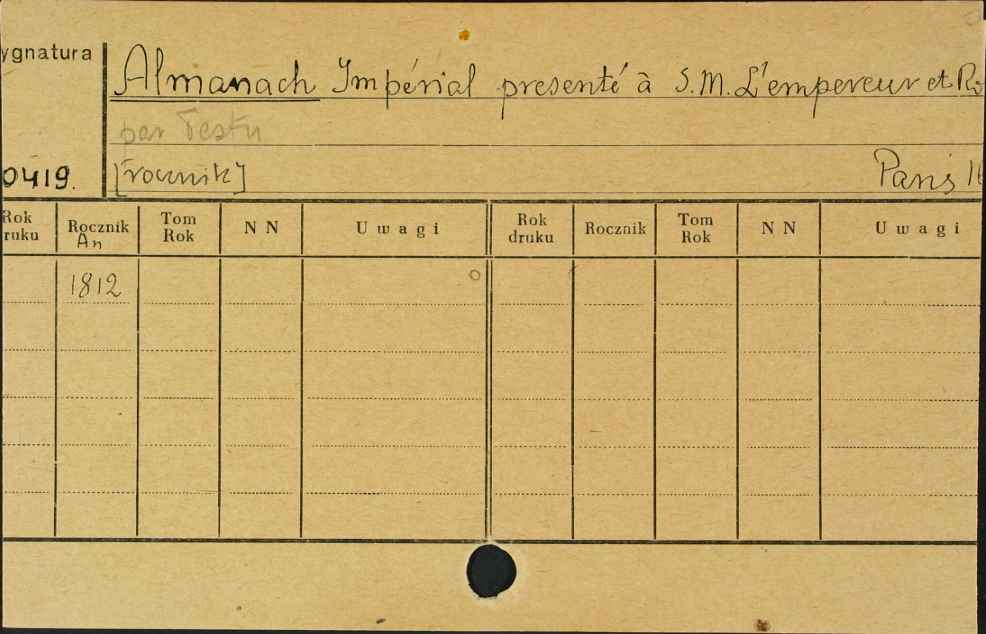 ygnatura
Almanach Impérial presenté à S.M. L'empereur et Ro
par Testu
0419. [rocznik] Paris 1
Rok druku Rocznik An Tom Rok N N Uwagi Rok druku Rocznik Tom Rok N N Uwagi
1812